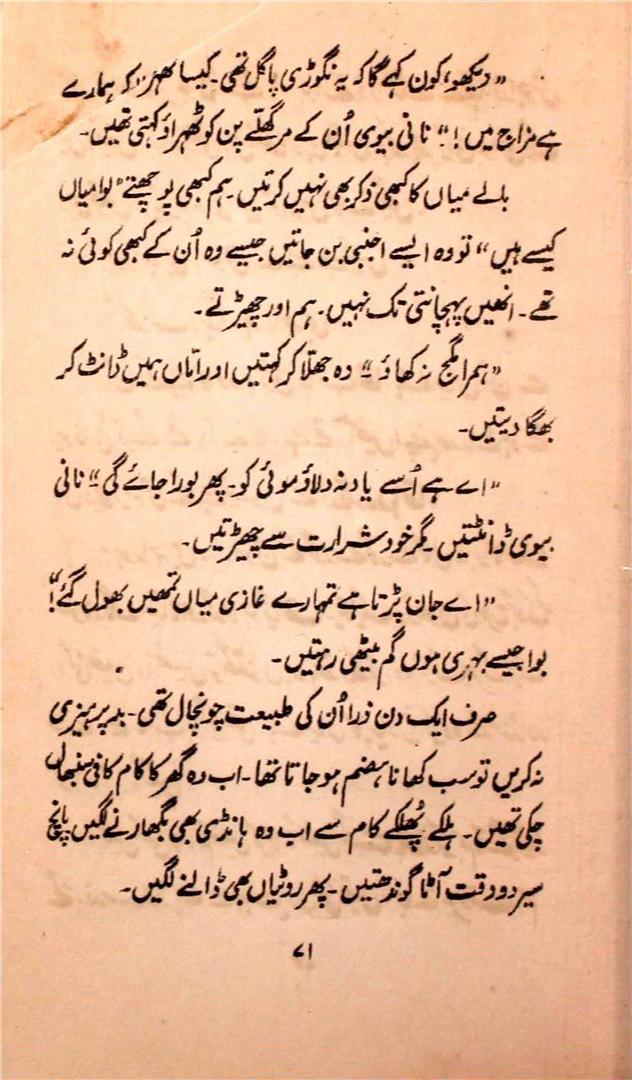 "دیکھو، کون کہے گا کہ یہ نگوڑی پاگل تھی۔ کیسا ٹھہراؤ کہ ہمارے
ہے مزاج میں!" نانی بیوی اُن کے مرگھلّے پن کو ٹھہراؤ کہتی تھیں۔
بالے میاں کا کبھی ذکر بھی نہیں کرتیں۔ ہم کبھی پوچھتے "بوا میاں
کیسے ہیں" تو وہ ایسے اجنبی بن جاتیں جیسے وہ اُن کے کبھی کوئی نہ
تھے۔ انھیں پہچانتی تک نہیں۔ ہم اور چھیڑتے۔
"ہمرا مگج نہ کھاؤ۔" وہ جھلّا کر کہتیں اور اماں ہمیں ڈانٹ کر
بھگا دیتیں۔
"اے ہے اُسے یاد نہ دلاؤ موئی کو۔ پھر بورا جائے گی۔" نانی
بیوی ڈانٹتیں۔ مگر خود شرارت سے چھیڑتیں۔
"اے جان پڑتا ہے تمہارے غازی میاں تمھیں بھول گئے!"
بوا جیسے بہری ہوں گم بیٹھی رہتیں۔
صرف ایک دن ذرا اُن کی طبیعت چونچال تھی۔ بد پرہیزی
نہ کریں تو سب کھانا ہضم ہو جاتا تھا۔ اب وہ گھر کا کام کافی سنبھال
چکی تھیں۔ ہلکے پُھلکے کام سے اب وہ ہانڈی بھی بگھارنے لگیں پانچ
سیر دو وقت آٹا گوندھتیں۔ پھر روٹیاں بھی ڈالنے لگیں۔
۷۱